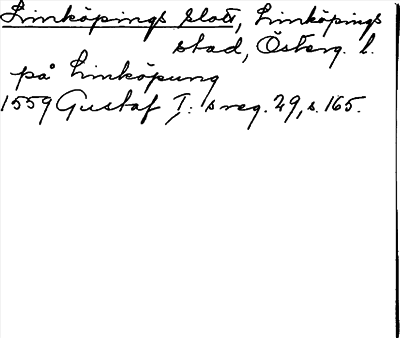 Linköpings slott, Linköpings
stad, Österg. l.
på Linköpung
1559 Gustaf I: s reg. 29, s. 165.